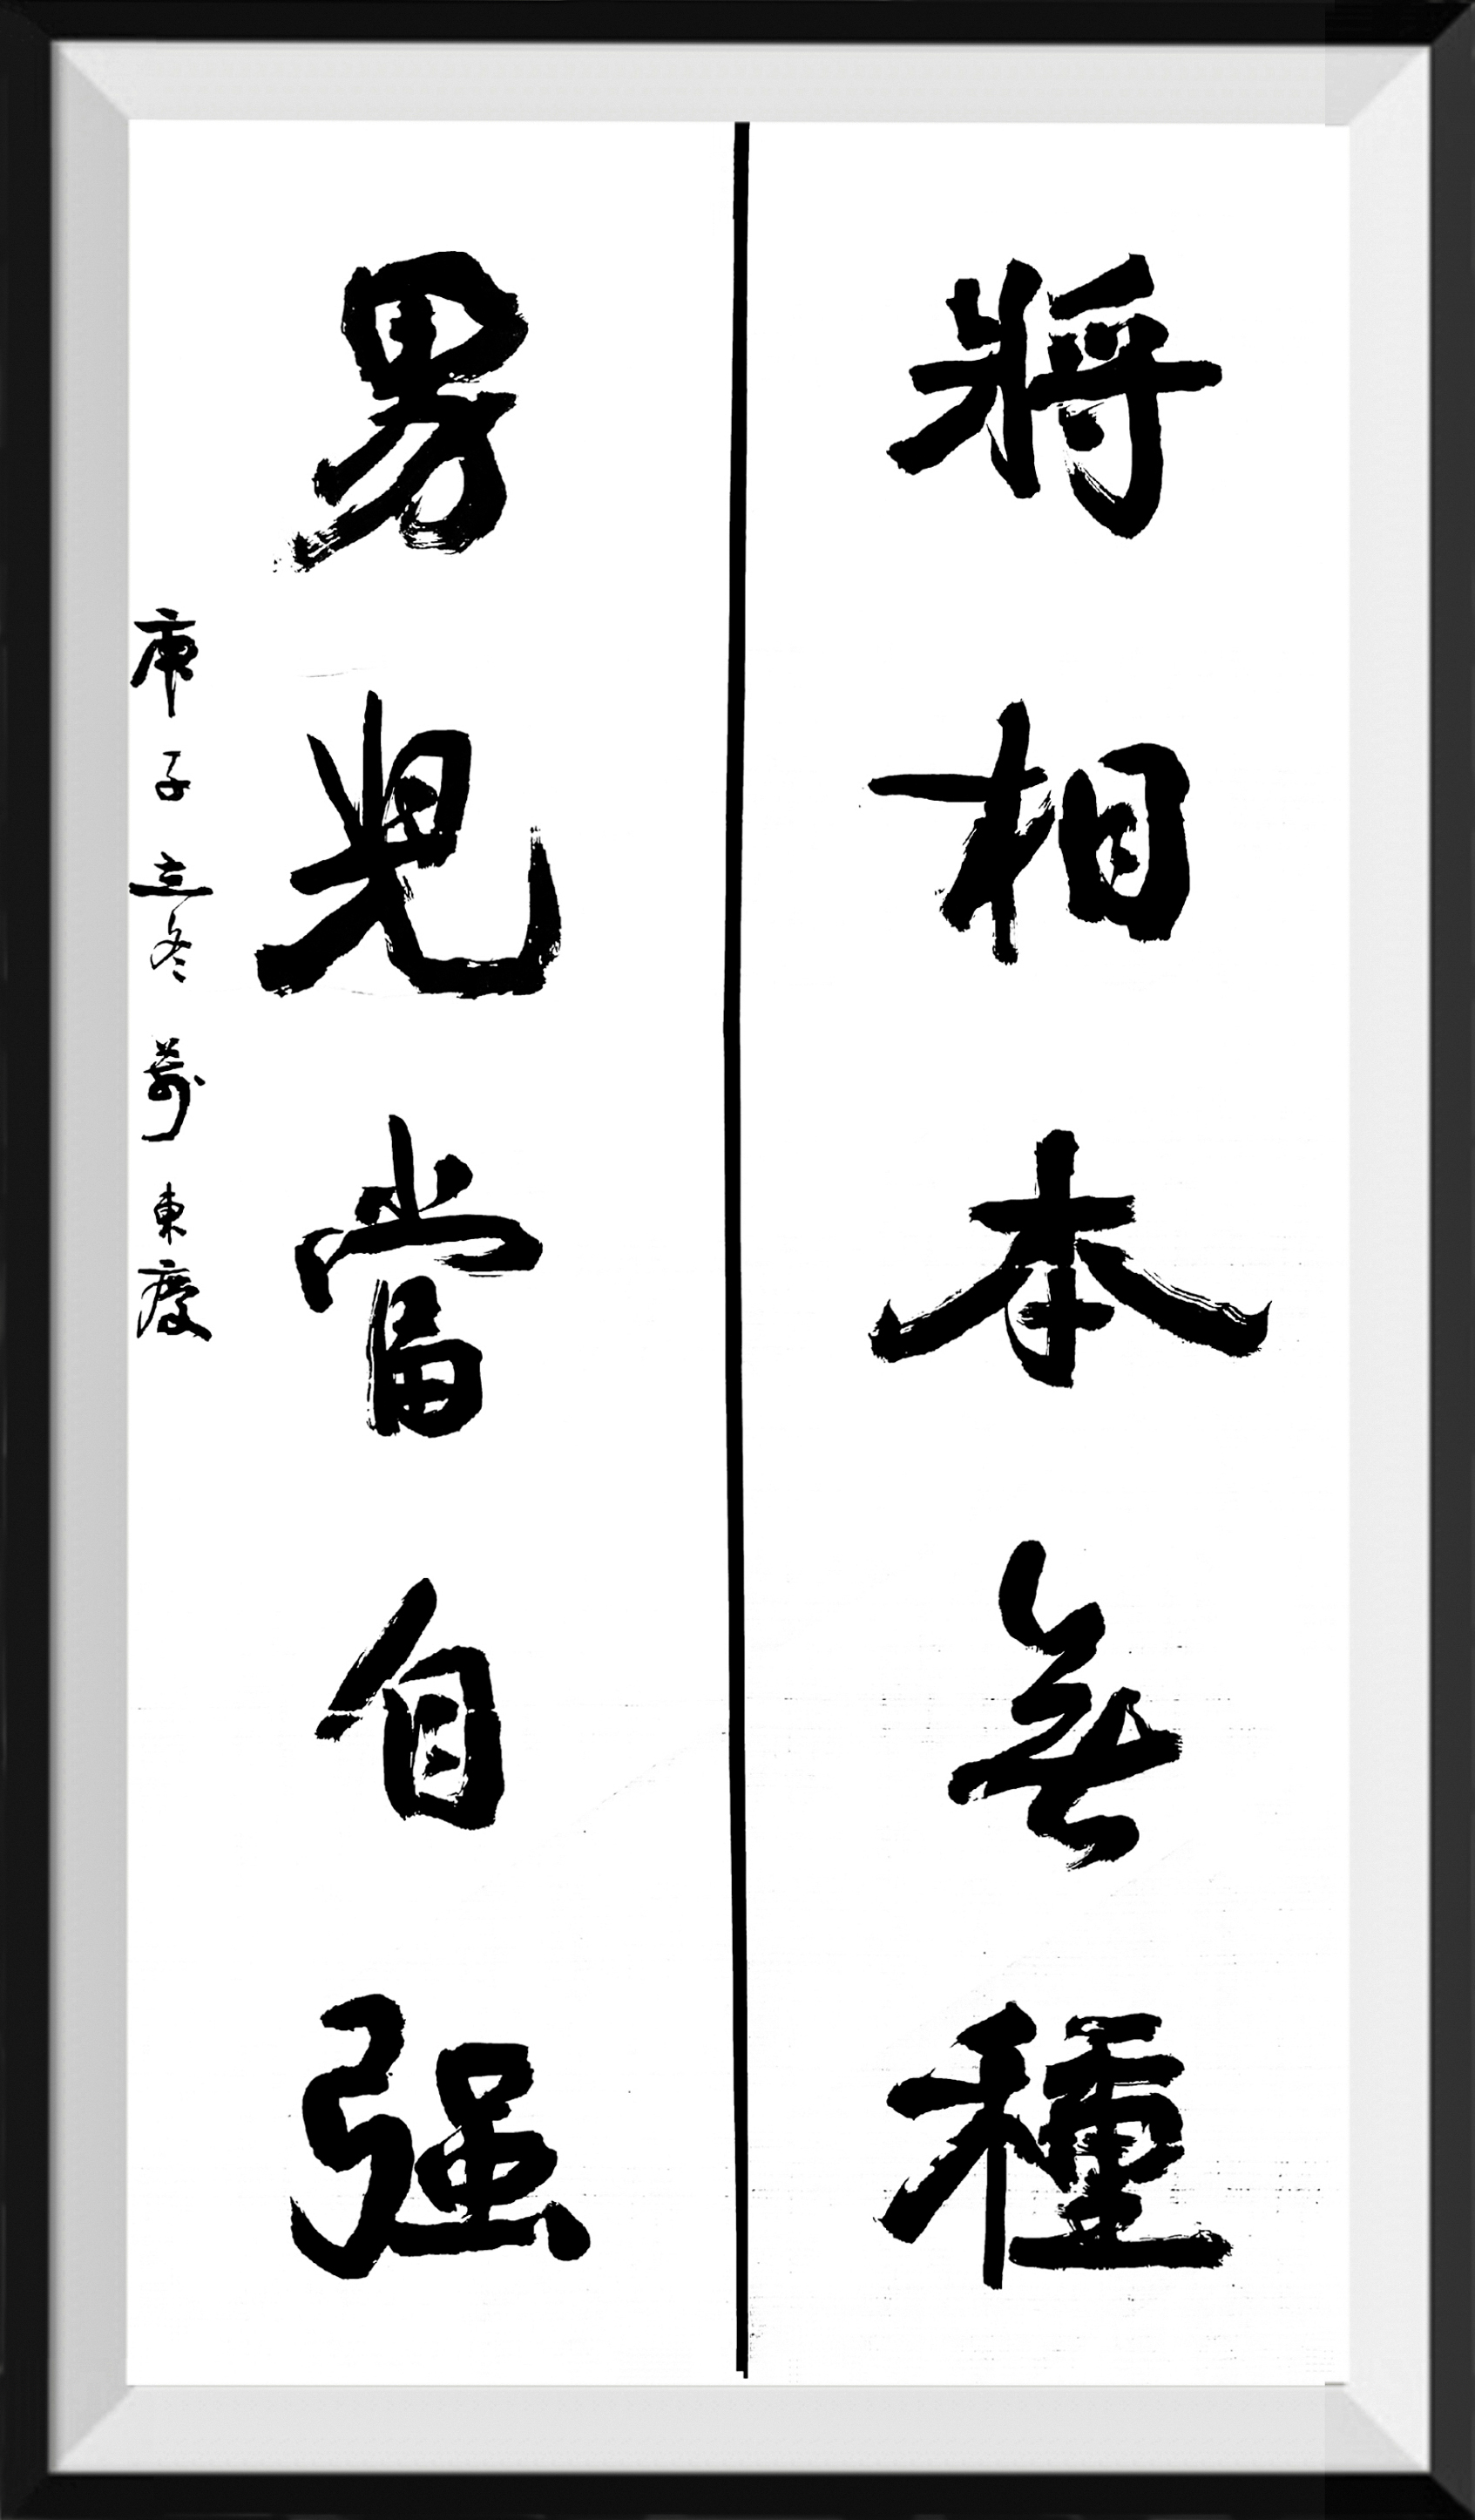 將相本無種
男児當自强
庚子立冬 東慶